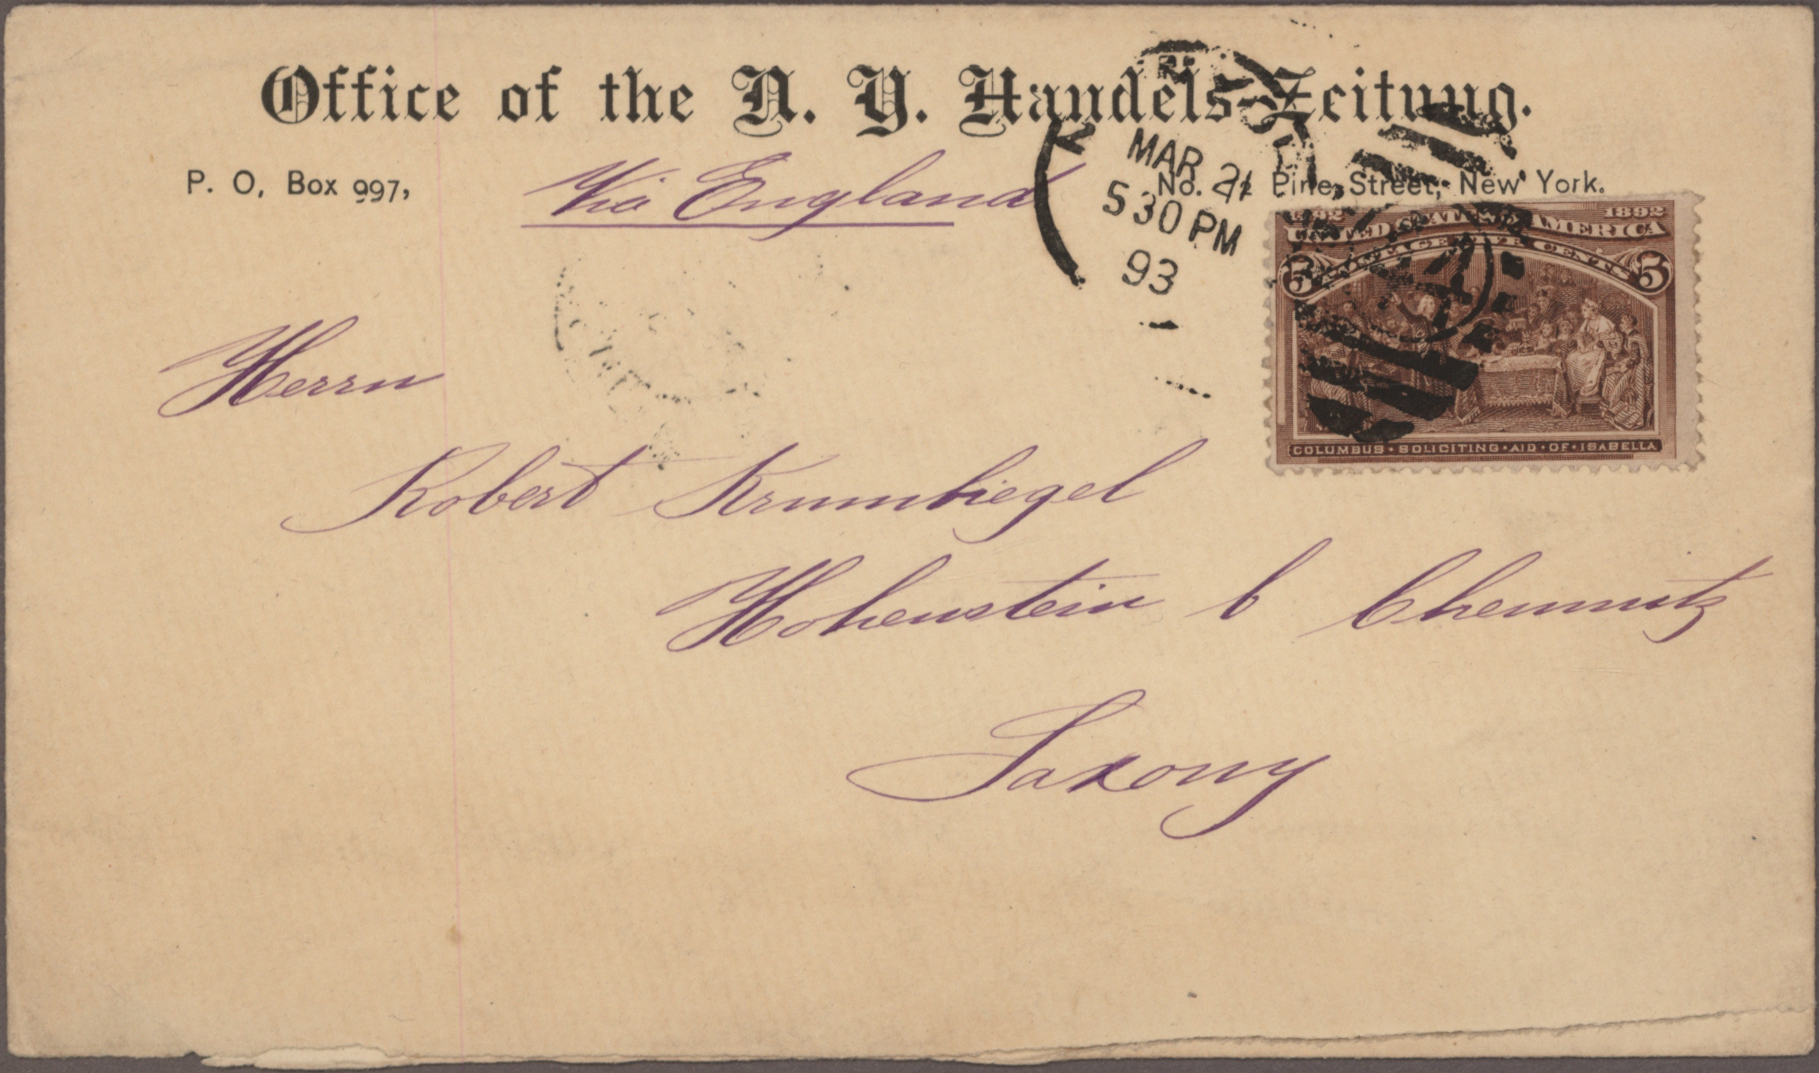 Office of the N. Y. Handels-Zeitung.
P. O. Box 997,
Via England
No. Pine Street, New York.
MAR 21
5 30 PM
93
1892 1892
UNITED STATES OF AMERICA
POSTAGE FIVE CENTS
5 5
COLUMBUS · SOLICITING · AID · OF · ISABELLA
Herrn
Robert Krumbiegel
Hohenstein b Chemnitz
Saxony